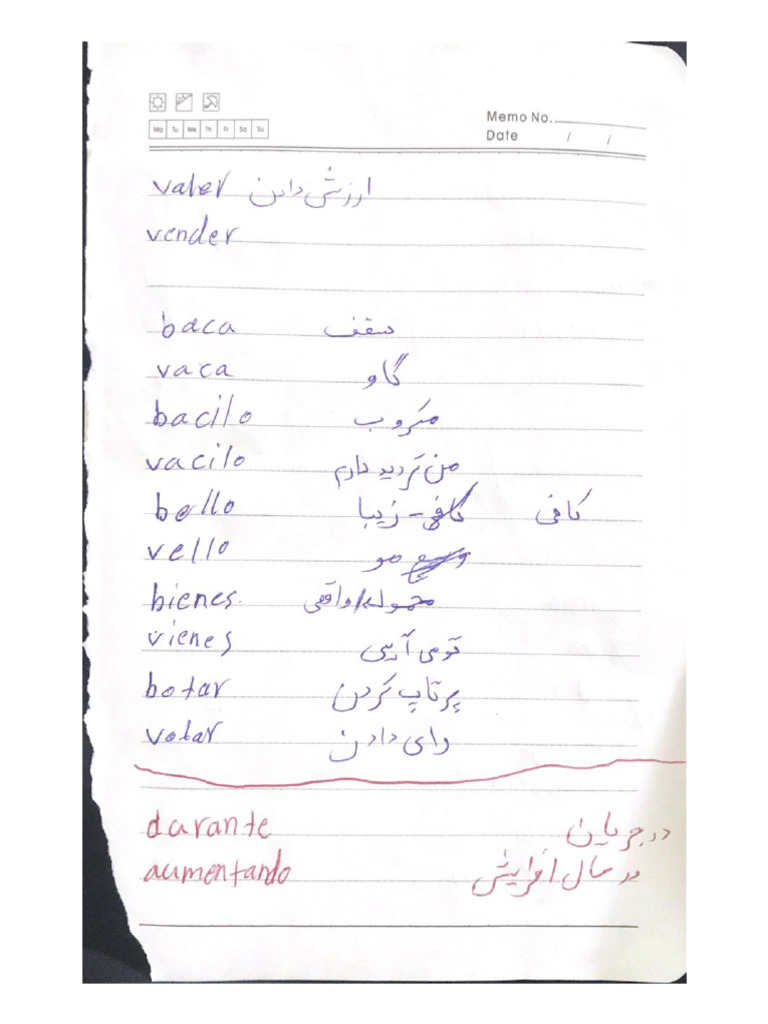 Memo No.
Mo Tu We Th Fr Sa Su
Date / /
valer ارزش دادن
vender
baca سقف
vaca گاو
bacilo میکروب
vacilo من تردید دارم
bello کافی - زیبا کافی
vello مو
bienes محموله/واقعی
vienes تو می آیی
botar پرتاپ کردن
votar رای دادن
durante در جریان
aumentando در حال افزایش